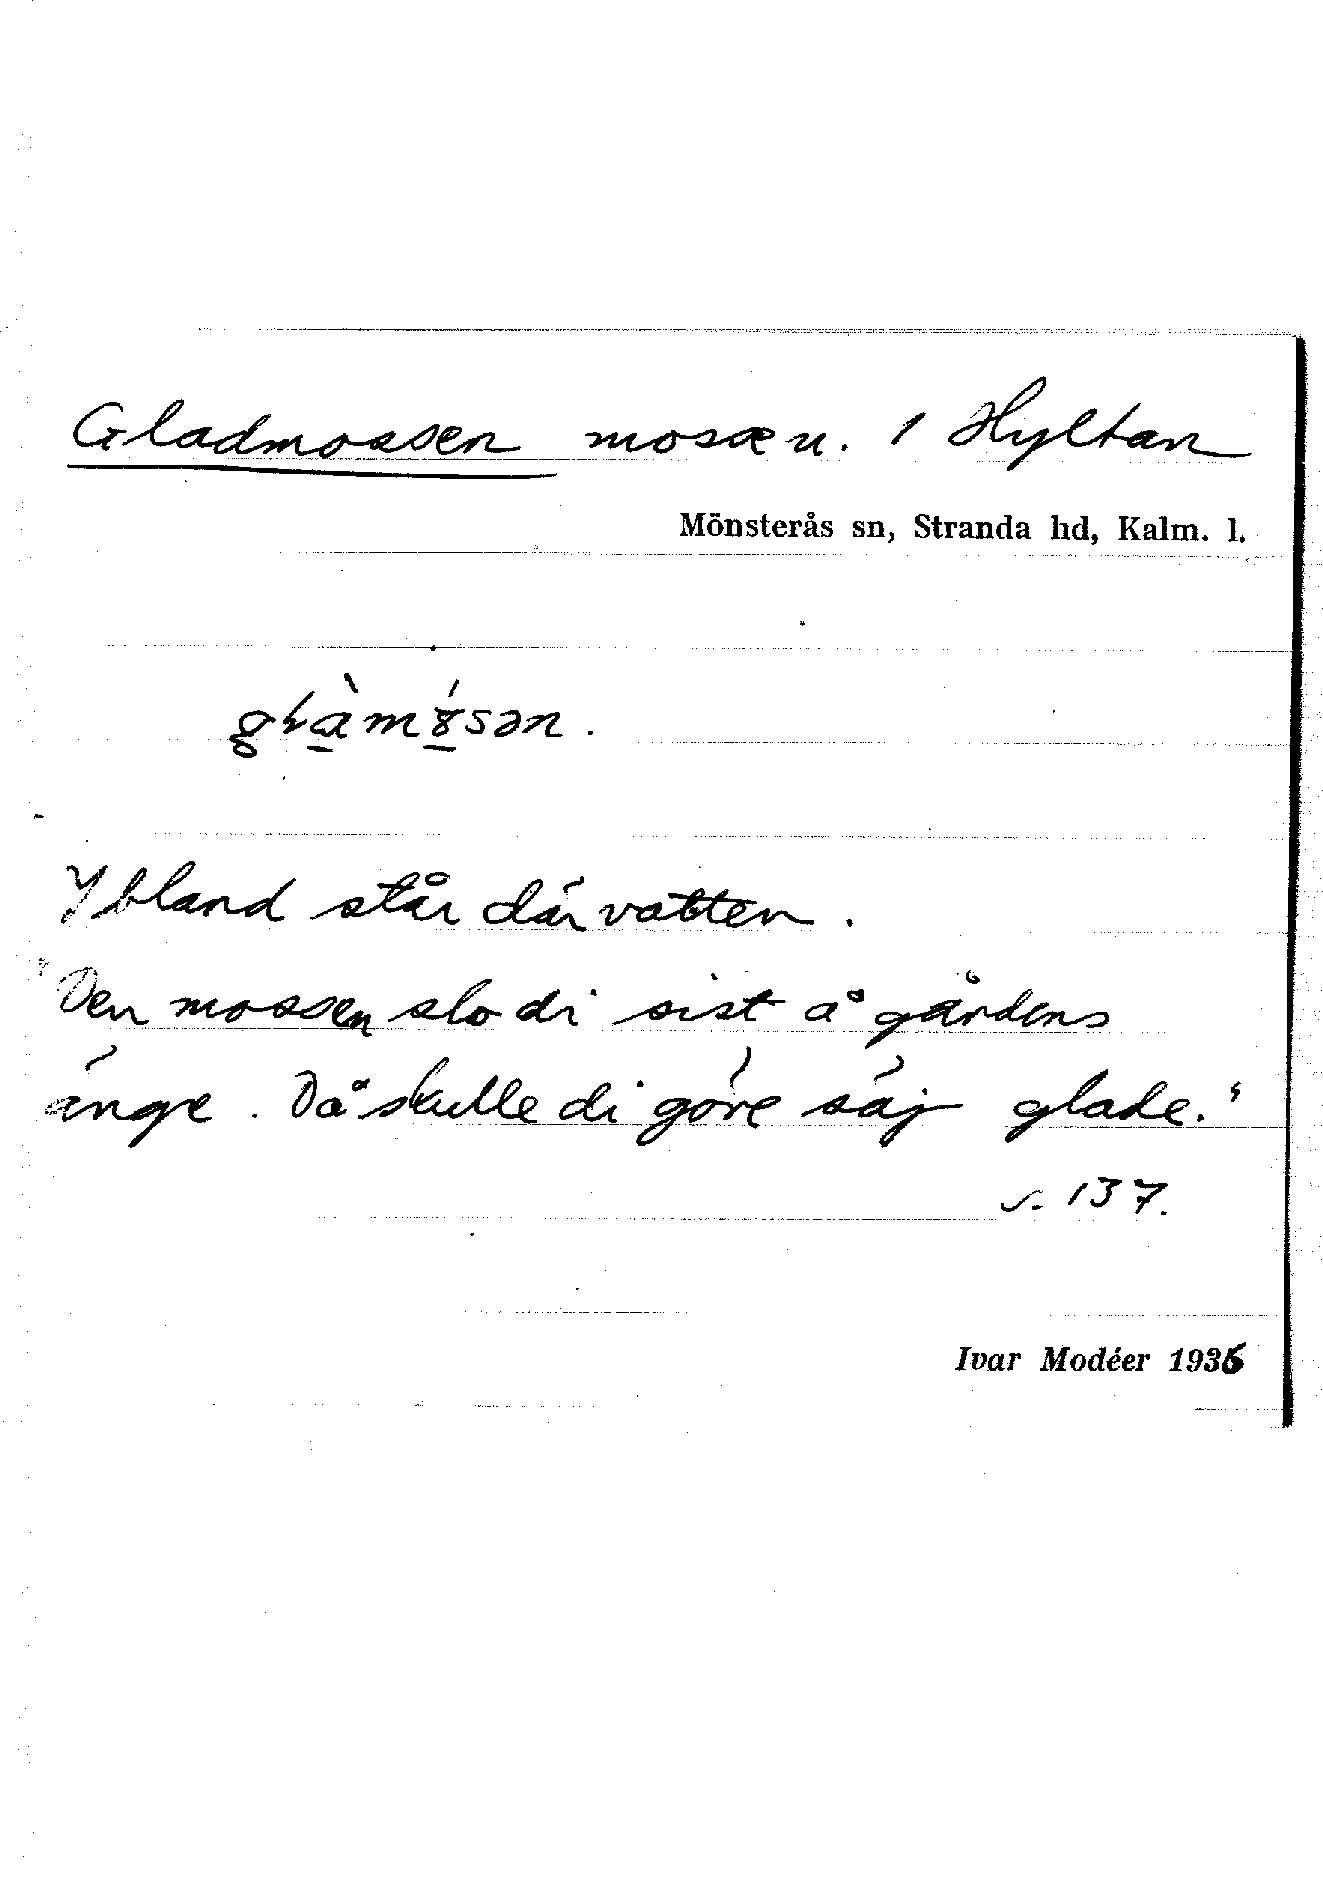 Gladmossen mosse n. 1 Hyltan
Mönsterås sn, Stranda hd, Kalm. l.
Ybland står där vatten.
"Den mossen slo di sist å gårdens
änge. Då skulle di göre säj glade."
s. 137.
Ivar Modéer 1936